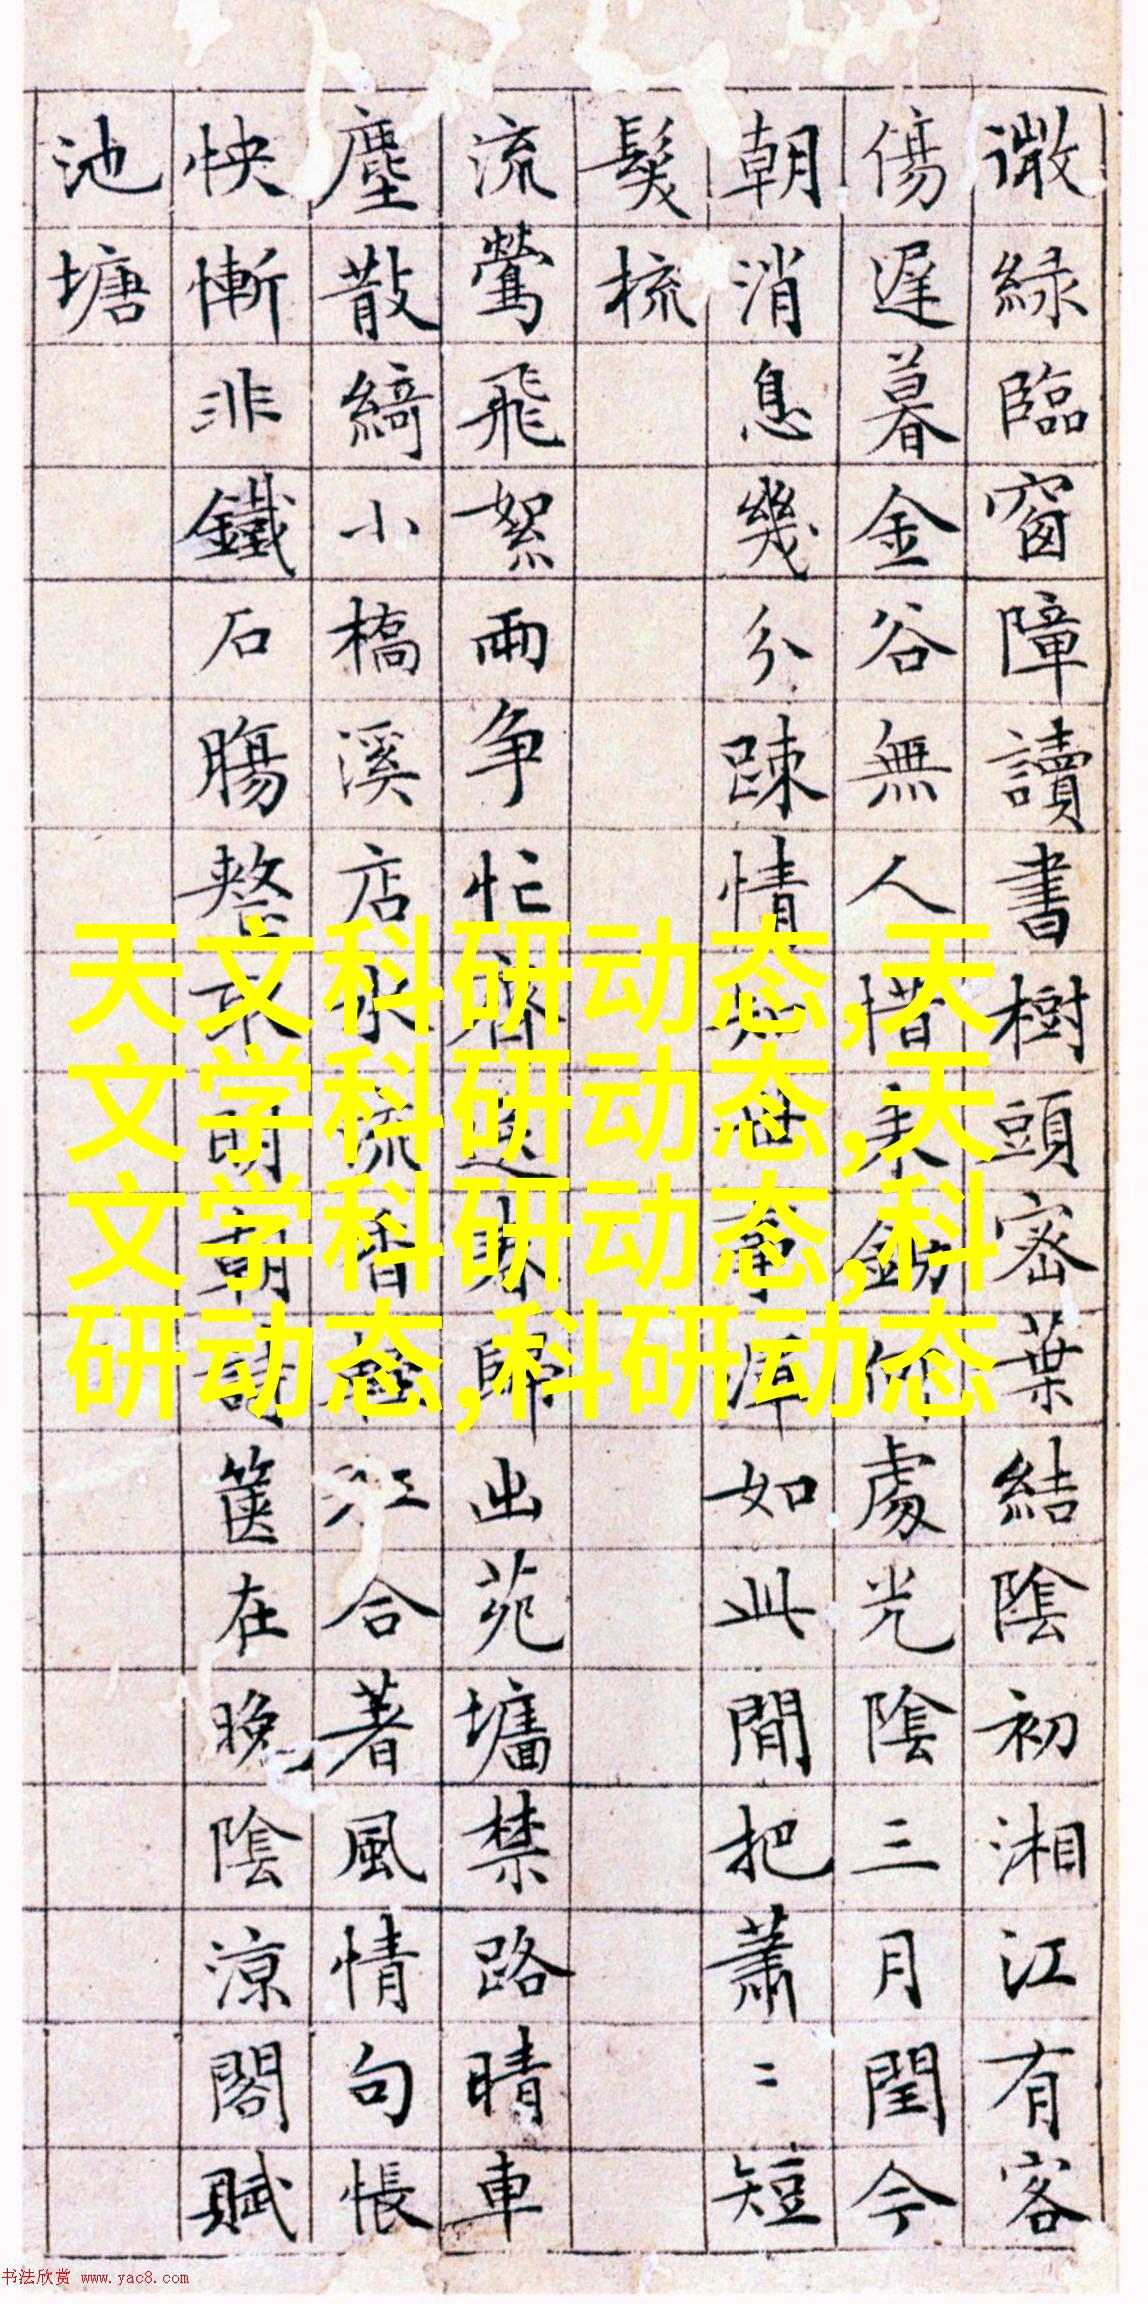 微綠臨窗障讀書樹頭密葉結陰初湘江有客
傷遲暮金谷無人惜未鋤何處光陰三月閏今
朝消息幾分踈情如此間把蕭〻短
髮梳
流鶯飛絮兩爭忙齊送春歸出苑墻禁路晴車
塵散綺小橋溪店水流香江合著風情句悵
怏慚非鐵石腸整衣明朝詩篋在晚陰涼閣賦
池塘
天文科研动态,天
文学科研动态,天
文学科研动态,科
研动态,科研动态
书法欣赏 www.yac8.com